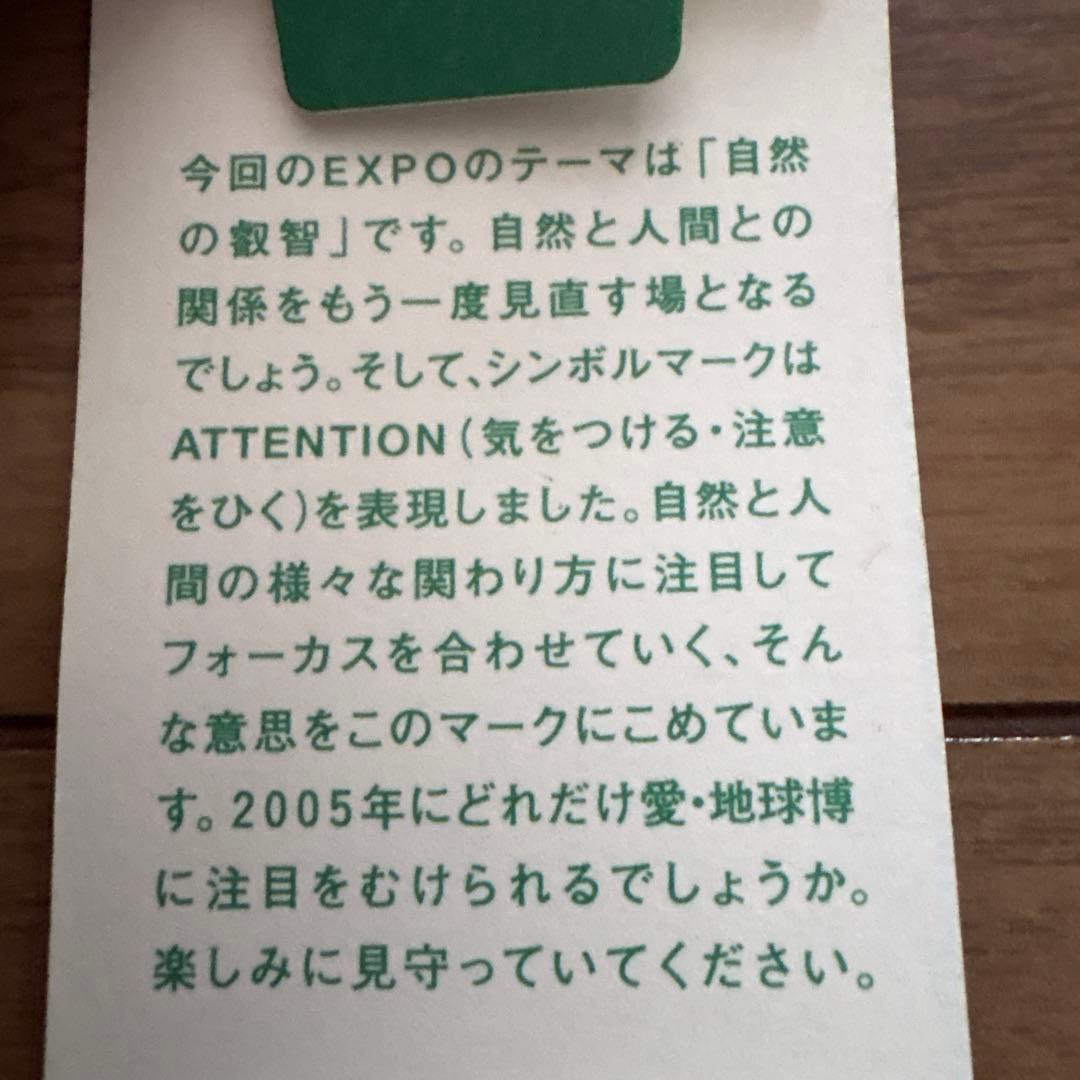 今回のEXPOのテーマは「自然
の叡智」です。自然と人間との
関係をもう一度見直す場となる
でしょう。そして、シンボルマークは
ATTENTION(気をつける・注意
をひく)を表現しました。自然と人
間の様々な関わり方に注目して
フォーカスを合わせていく、そん
な意思をこのマークにこめていま
す。2005年にどれだけ愛・地球博
に注目をむけられるでしょうか。
楽しみに見守っていてください。